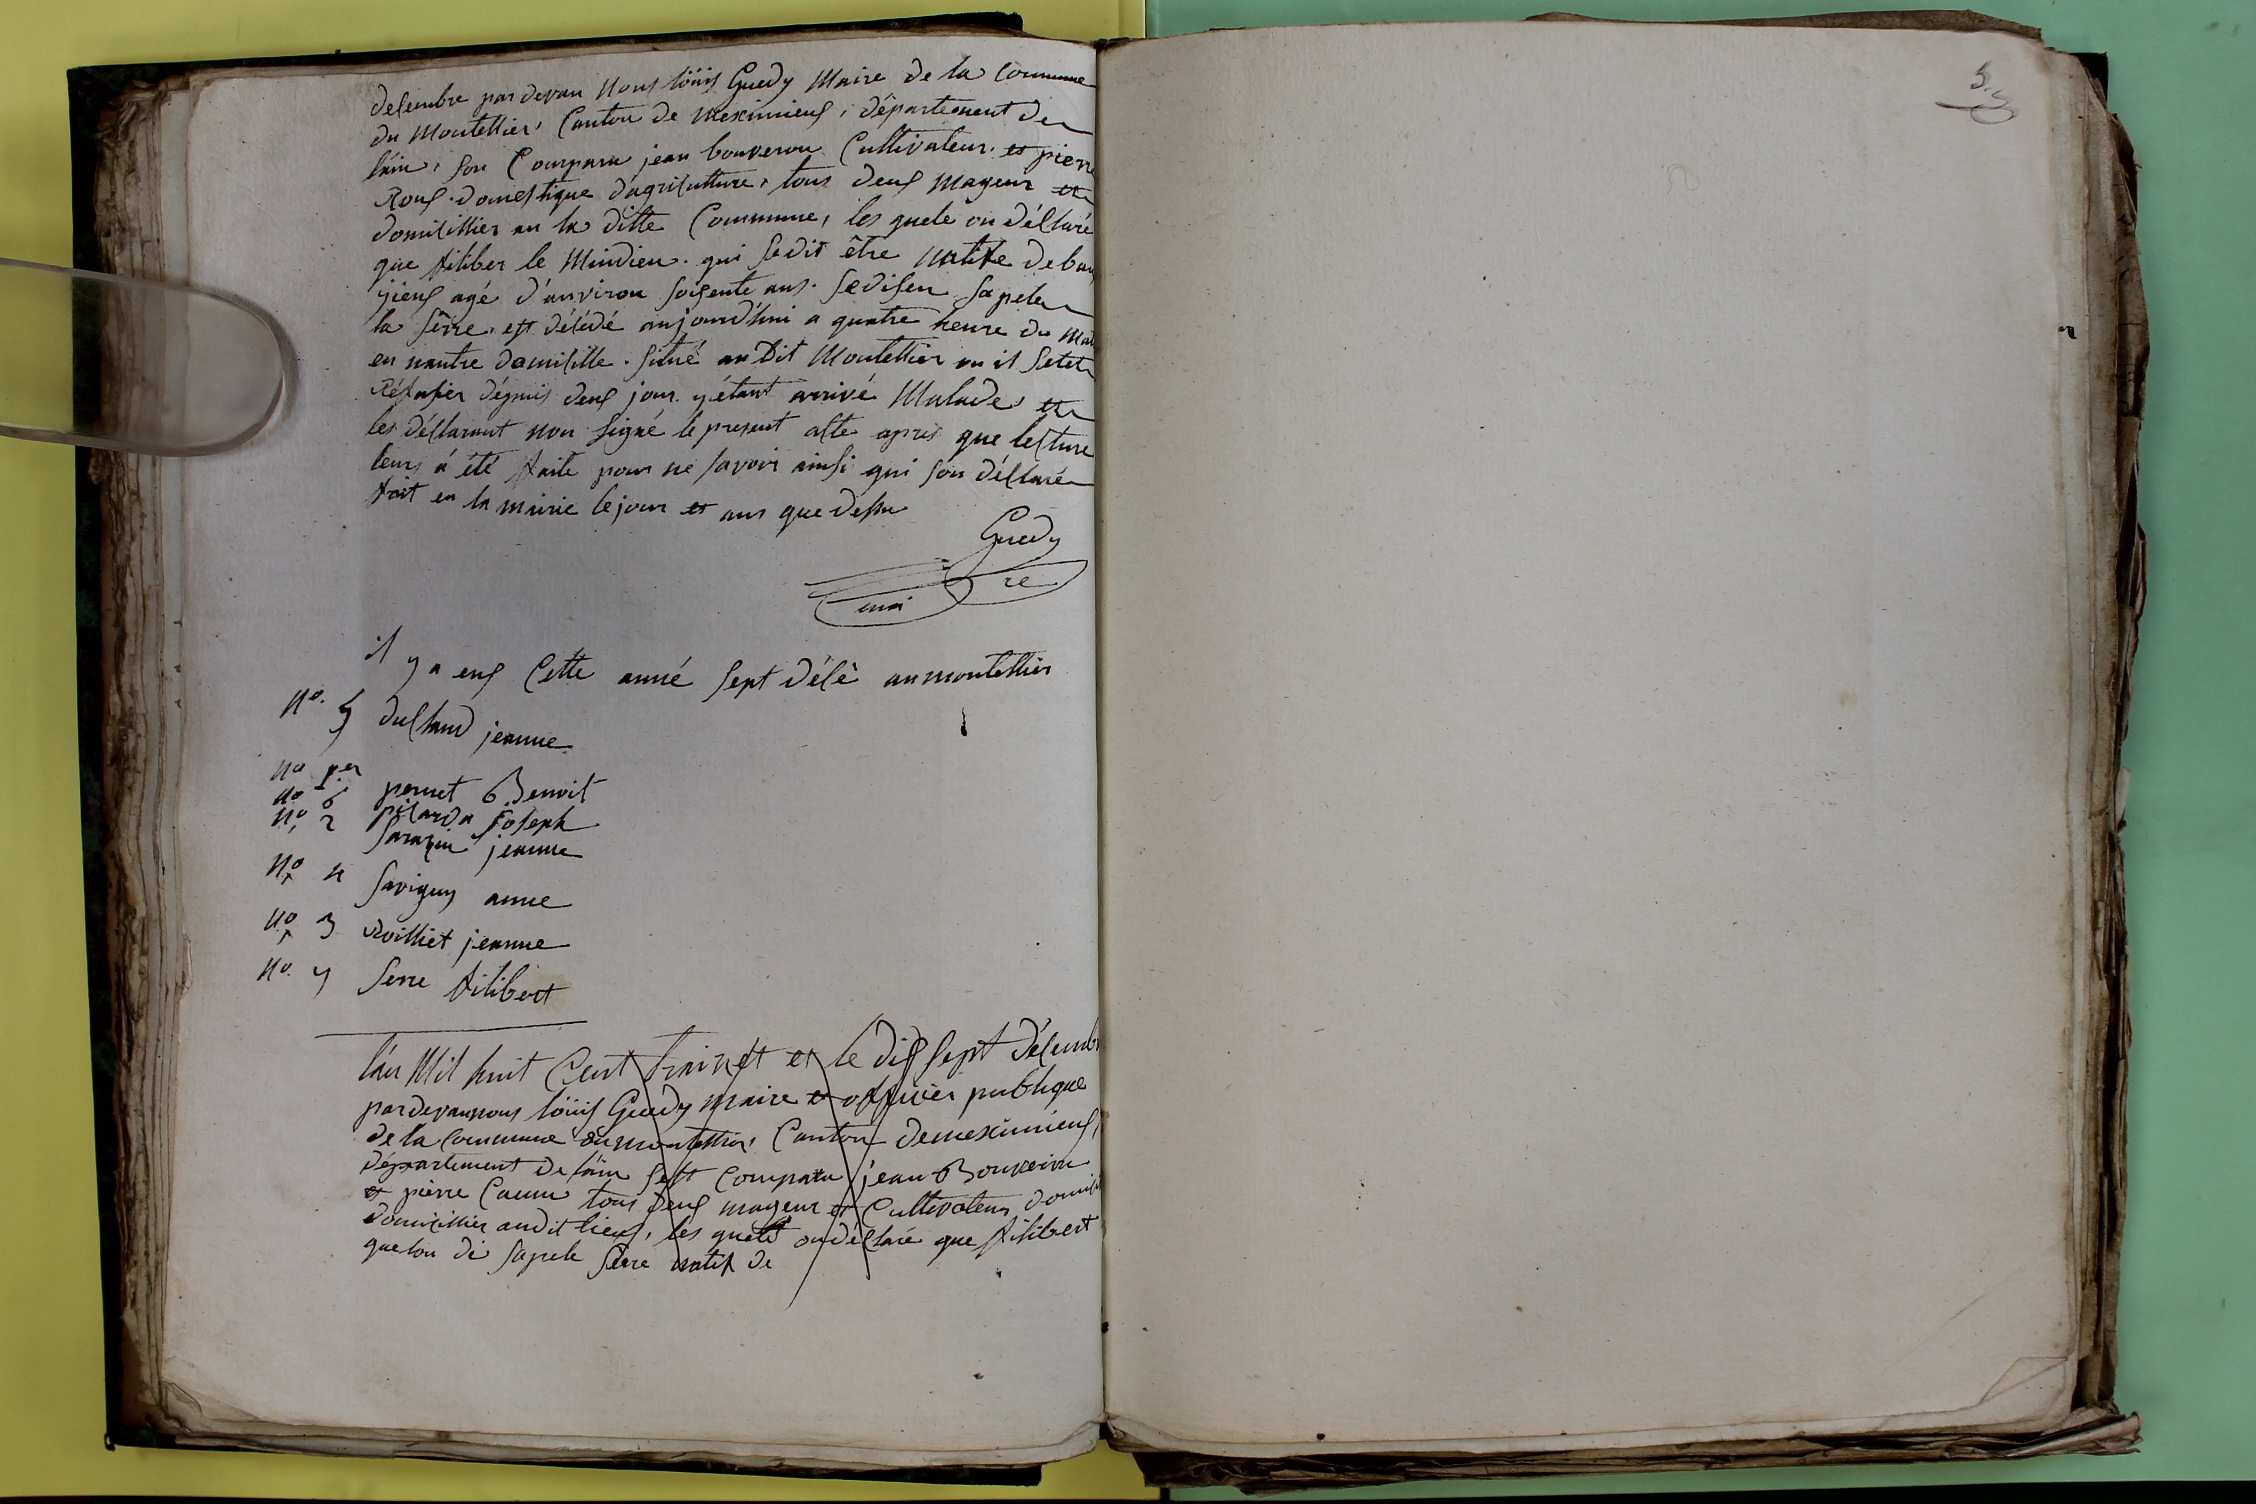 decembre par devan nous löüis Guedy Maire de la Commune
du Montellier, Canton de meximieux, département de
l'ain, son Comparu jean bouveron Cultivateur et pierre
Roux domestique dagriculture, tous deux mayeur et
domicillier au la ditte Commune, les quele on déclaré
que filiber le Mindien. qui sedit être natife de
gieux agé d'anviron soisente ans. sedisen sapeler
la serre, est décédé aujourd'hui a quatre heure du mat
en nautre domicille. situé audit Montellier ou il setet
Réfugier dépuis deux jour y étant arrivé Malade, et
les déclarant non signé le présent acte apris que lecture
leurs a été faite pour ne savoir ainsi qui son déclaré
fait en la mairie le jour et ans que dessu
Guedy
mai re
il y a eus Cette anné sept décè aumontellier
N°. 5 duchand jeanne
N° per pernet Benoit
N° 6 picarda Joseph
N° 2 sarazin jeanne
N° 4 savigny anne
N° 3 Voilliet jeanne
N°. 7 serre filibert
l'an Mil huit Cent traizet et le dix sept décemb
pardevannous löüis Guedy maire et officier publique
de la Commune du montellier, Canton demeximieux,
Département de l'ain sest Comparu jean Bouveiron
et pierre tous deux mayeur et Cultivateur domici
domicillier audit lieux, les quele on déclaré que filibert
quelon di sapele serre natif de
5.